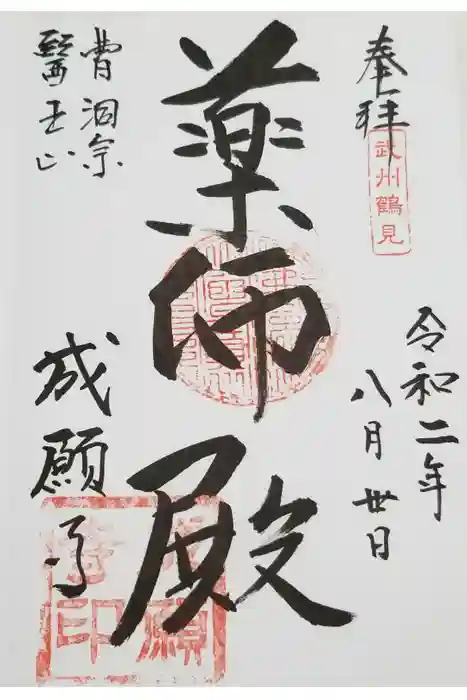 奉拝
武州鶴見
令和二年
八月丗日
薬師殿
曹洞宗
醫王山
成願寺